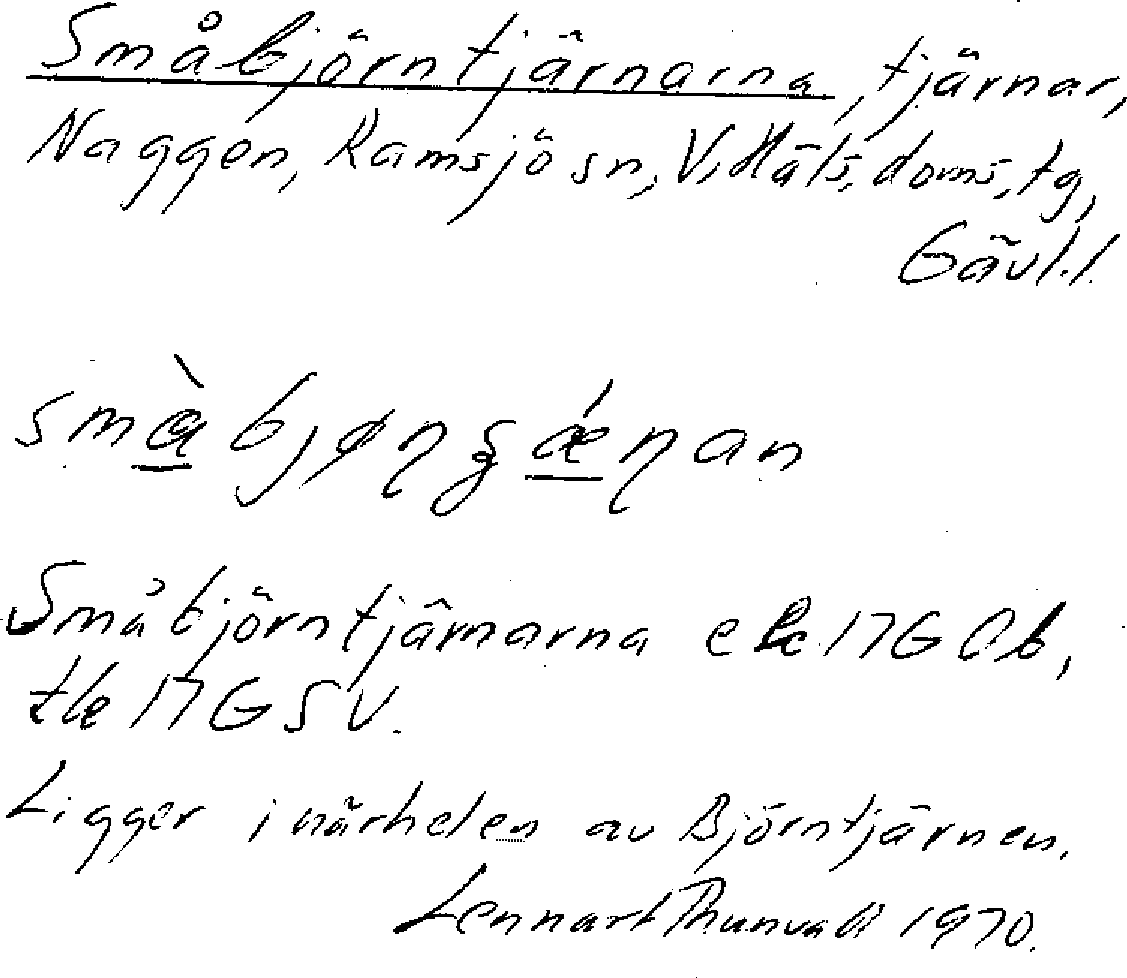 Småbjörntjärnarna, tjärnar,
Naggen, Ramsjö sn, V. Häls. doms. tg,
Gävl.l.
småbjøɳʂǽɳan
Småbjörntjärnarna ek 17G 0b,
tk 17G SV.
Ligger i närheten av Björntjärnen.
Lennart Thunvall 1970.